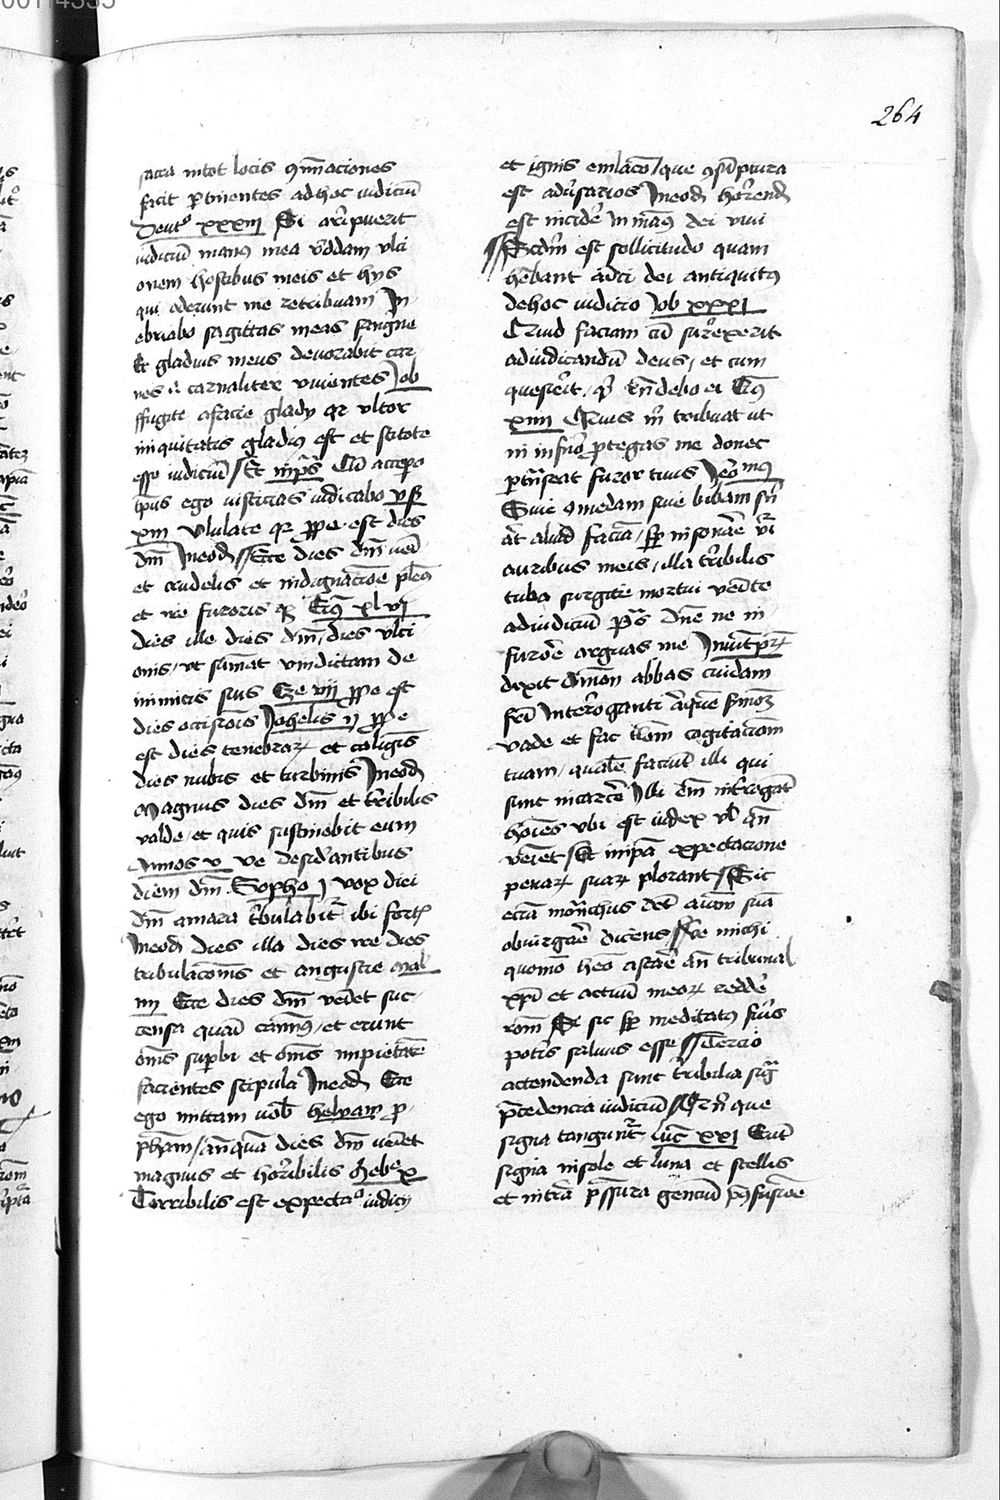 264
sacra in tot locis ꝯminaciones
facit ꝑtinentes ad hoc iudiciū
Deuto xxxij Si arripuerit
iudiciū manus mea reddam vlci
onem hostibus meis et hys
qui oderunt me retribuam In
ebriabo sagittas meas sangue
Et gladius meus deuorabit car
nes .i. carnaliter viuentes Iob
ffugite a facie glady qr vltor
iniquitatis gladius est et scitote
esse iudiciū Et in ps Cū accepo
tp̄us ego iusticias iudicabo ysa
xiij Vlulate qr ꝓpe est dies
dm̄ Ineod Ecce dies dm̄ veīet
et crudelis et indignacōe plen9
et ire furoris qr Iere xlvj
dies ille dies dm̄ dies vlci
onis vt sumat vindictam de
inimicis suis Eze vij ꝓpe est
dies occisiois Iohelis ij ꝓpe
est dies tenebrarꝝ et caliginis
dies nubis et turbinis Ineod
Magnus dies dm̄ et t'ribilis
valde et quis sustinebit eum
Amos v Ve desid'antibus
diem dm̄ Sopho j vox diei
dm̄ amara t'bulabit' ibi fortis
Ineod dies illa dies ire dies
tribulacōnis et angustie Mal
iiij Ecce dies dm̄ veīet suc
censa quasi camin9 et erunt
om̄s supbi et om̄s impietatē
facientes stipula Ineod Ecce
ego mittam vob helyam ꝓ
phetam anq̄ua dies dm̄ veīet
magnus et horribilis Hebre x
Terribilis est expectaco iudicij
et ignis emulaco que ꝯsūptura
est adu'sarios Ineod horrend
est incide' in man9 dei viui
Scdm est sollicitudo quam
hēbant sc̄i dei antiquit9
de hoc iudicio Iob xxxi
Quid faciam cū surrexerit
ad iudicandū deus et cum
quesierit qd rn̄debo ei
xiiij Quis m tribuat ut
in inferno ꝓtegas me donec
ꝑtranseat furor tuus Ieronimus
Siue ꝯmedam siue bibam siue
aliud faciā semꝑ insonare vr
auribus meis illa t'ribilis
tuba surgite mortui venite
ad iudiciū ps Dn̄e ne in
furore arguas me In vit pr
dixit Amon abbas cuidam
fri interroganti
vade et fac talem cogitacionem
tuam qualē faciunt illi qui
sunt in carcere Illi em̄ int'rogant
hoīes vbi est iudex vl qn̄
veniet Et in ipa expectacione
penarꝝ suarꝝ plorant Sic
eciā monachus debet aīam suā
obiurgare dicens Ve michi
quomo heo astare an̄ tribunal
xp̄i et actuū meorꝝ redde'
racōm Si sic semꝑ meditatus fuis
poteris saluus esse Tercio
attendenda sunt t'ribilia signa
p̄cedencia iudiciū que
signa tangunt' luc xxi Erūt
signa in sole et luna et stellis
et in terra p̄ssura genciū p̄ 9fusione